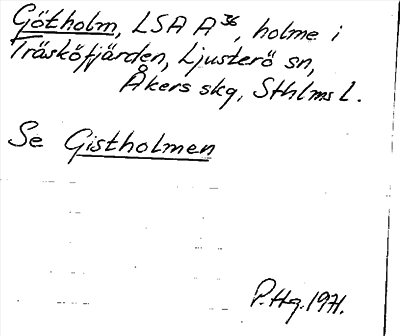 Götholm, LSA A³⁶, holme i
Träsköfjärden, Ljusterö sn,
Åkers skg, Sthlms l.
Se Gistholmen
P.Hg. 1971.